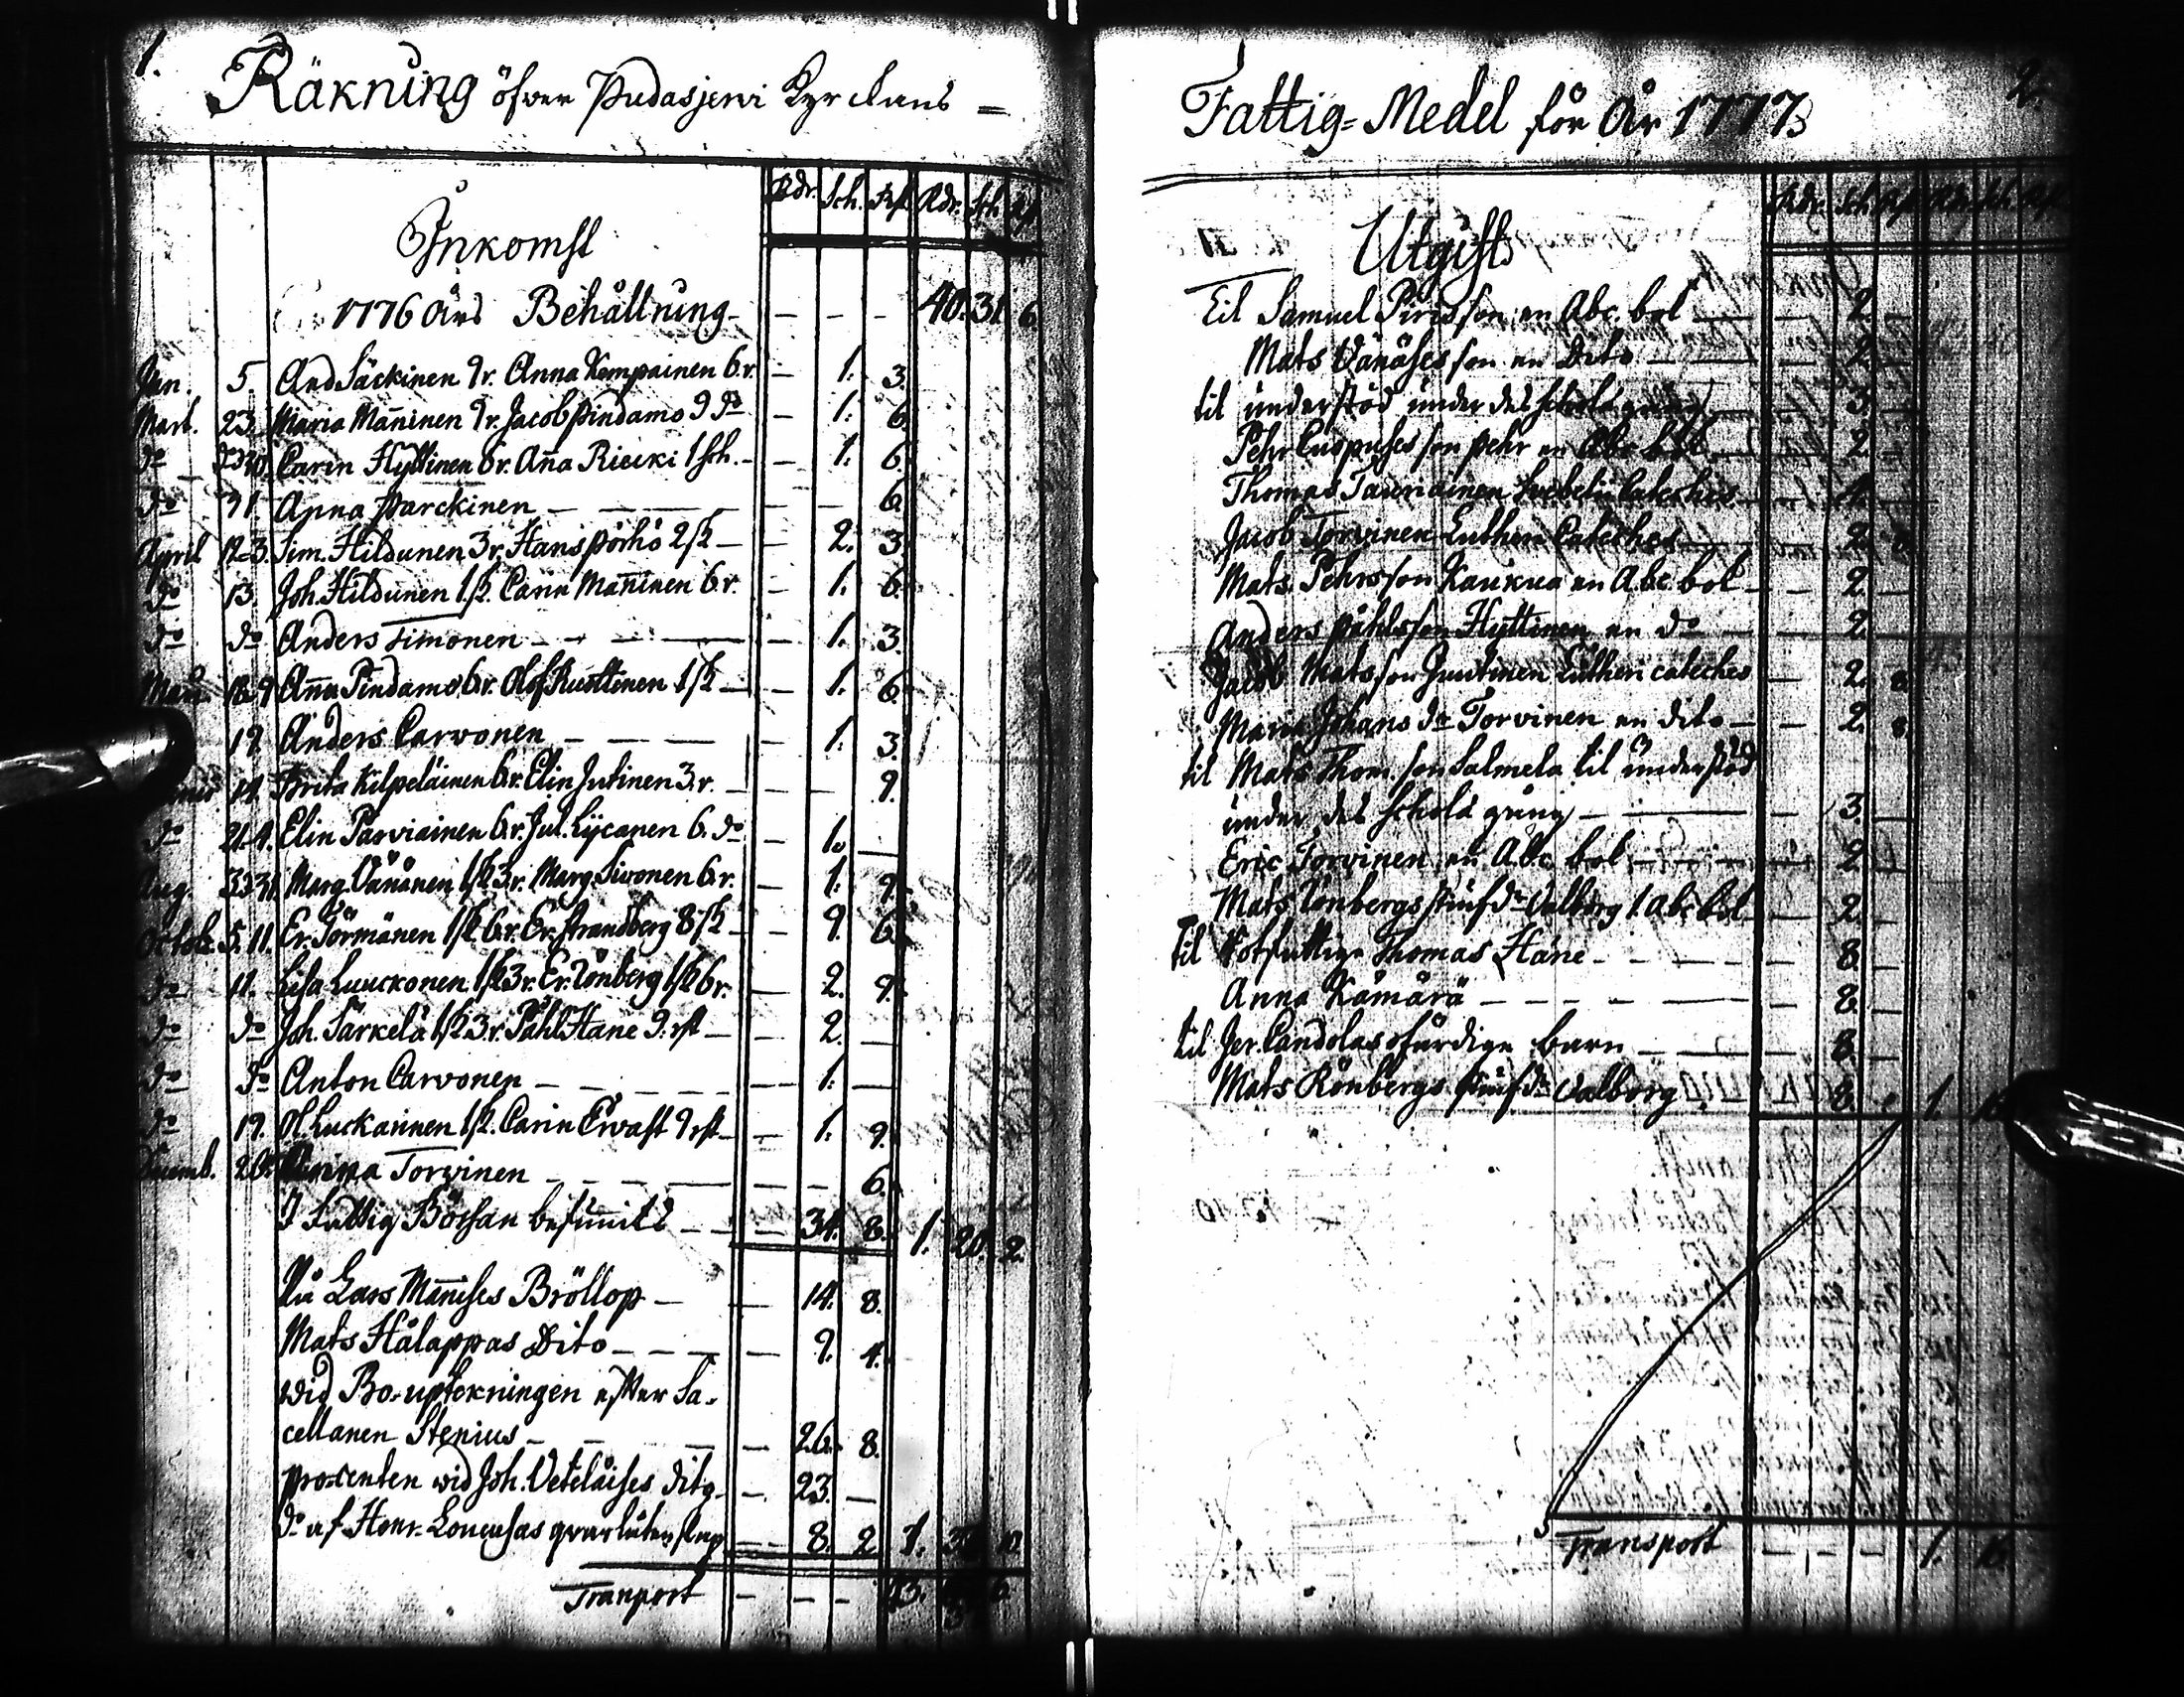 1.
Räkning öfwer Pudasjerwi Kyrckans =
Rdr. Sch. Rst. Rdr. Sch. Rst.
Inkomst
1776 års Behållning - - - - 40. 31. 6.
Jan. 5. And Säckinen 9r. Anna Kempainen 6.r. - 1. 3.
Mart. 23. Maria Mañinen 9r. Jacob Pindamo 9 do - 1. 6.
do Carin Hyttinen 6r. Aña Riecki 1 sch. - 1. 6.
do 31. Anna Parckinen - - - 6.
April 12.3. Sim. Hildunen 3r. Hans Pörhö 2 sk - 2. 3.
do 13. Joh. Hildunen 1 sk. Carin Mañinen 6.r. - 1. 6.
do do Anders Timonen - - - 1. 3.
Maii 18.9 Aña Pindamo 6r. Olof Rusttinen 1 sk - 1. 6.
19. Anders Carwonen - - - 1. 3.
14. Brita Kilpeläinen 6r. Elin Jutinen 3.r. - - 9.
do 21.4. Elin Parviainen 6.r. Jul. Lycanen 6. do - 1. -
Aug. 3.31. Marg. Vänänen 1 sk 3r. Marg. Sivonen 6.r. - 1. 9.
Octob. 5. 11. Er. Törmänen 1 sk 6.r. Er. Strandberg 8 sk - 9. 6.
do 11. Lisa Luuckonen 1 sk 3r. Er. Rönberg 1 sk 6r. - 2. 9.
do do Joh. Särkelä 1 sk 3.r. Påhl Hane 9. rst - 2. -
do do Anton Carvonen - - - 1. -
do 19. Ol. Luckarinen 1 sk. Carin Ervast 9 rst - 1. 9.
Decemb. 26. Torvinen - - - 6.
I Fattig Bössan befunnits - - 34. 8. 1. 20. 2.
På Lars Mañises Bröllop - - 14. 8.
Mats Hålappas Dito - - - 9. 4.
wid Bo-upteckningen efter Sa-
cellanen Stenius - - - 26. 8.
Procenten wid Joh. Veteläises dito - 23. -
do af Henr. qvarlåtenskap - 8. 2 1. 10.
Tranport - - - 43. 6.
2.
Fattig=Medel för År 1777
Rdr. Sch. Rst. Rdr. Sch. Rst.
Utgift
Til Samuel Pirisson en Abc. bok - 2. -
Mats Vänäses son en Dito - 2. -
til understöd under des schola gång - 3. -
Pehr son Pehr en Abc bok - 2. -
Thomas Tauriainen Svebelii Cateches - 4. -
Jacob Torvinen Lutheri Cateches - 2. 8.
Mats Pehrsson Kaukua en Abc bok - 2. -
Anders Påhlsson Hyttinen en do - 2.
Jacob Matsson Lutheri cateches - 2. 8.
Maria Johans dr Torvinen en dito - 2. 8.
til Mats Thom. son Salmela til understöd
under des schola gång - 3. -
Eric Torvinen en Abc bok - 2.
Mats Rönbergs stiufdr Valborg 1 abc bok - 2. -
Til Notfattige Thomas Hane - - 8. -
Anna Kämärä - - - - 8. -
til Jer. Landolas ofärdige barn - - 8. -
Mats Rönbergs stiufdr Valborg 8. 1. 16.
Transport - - - 1. 16.